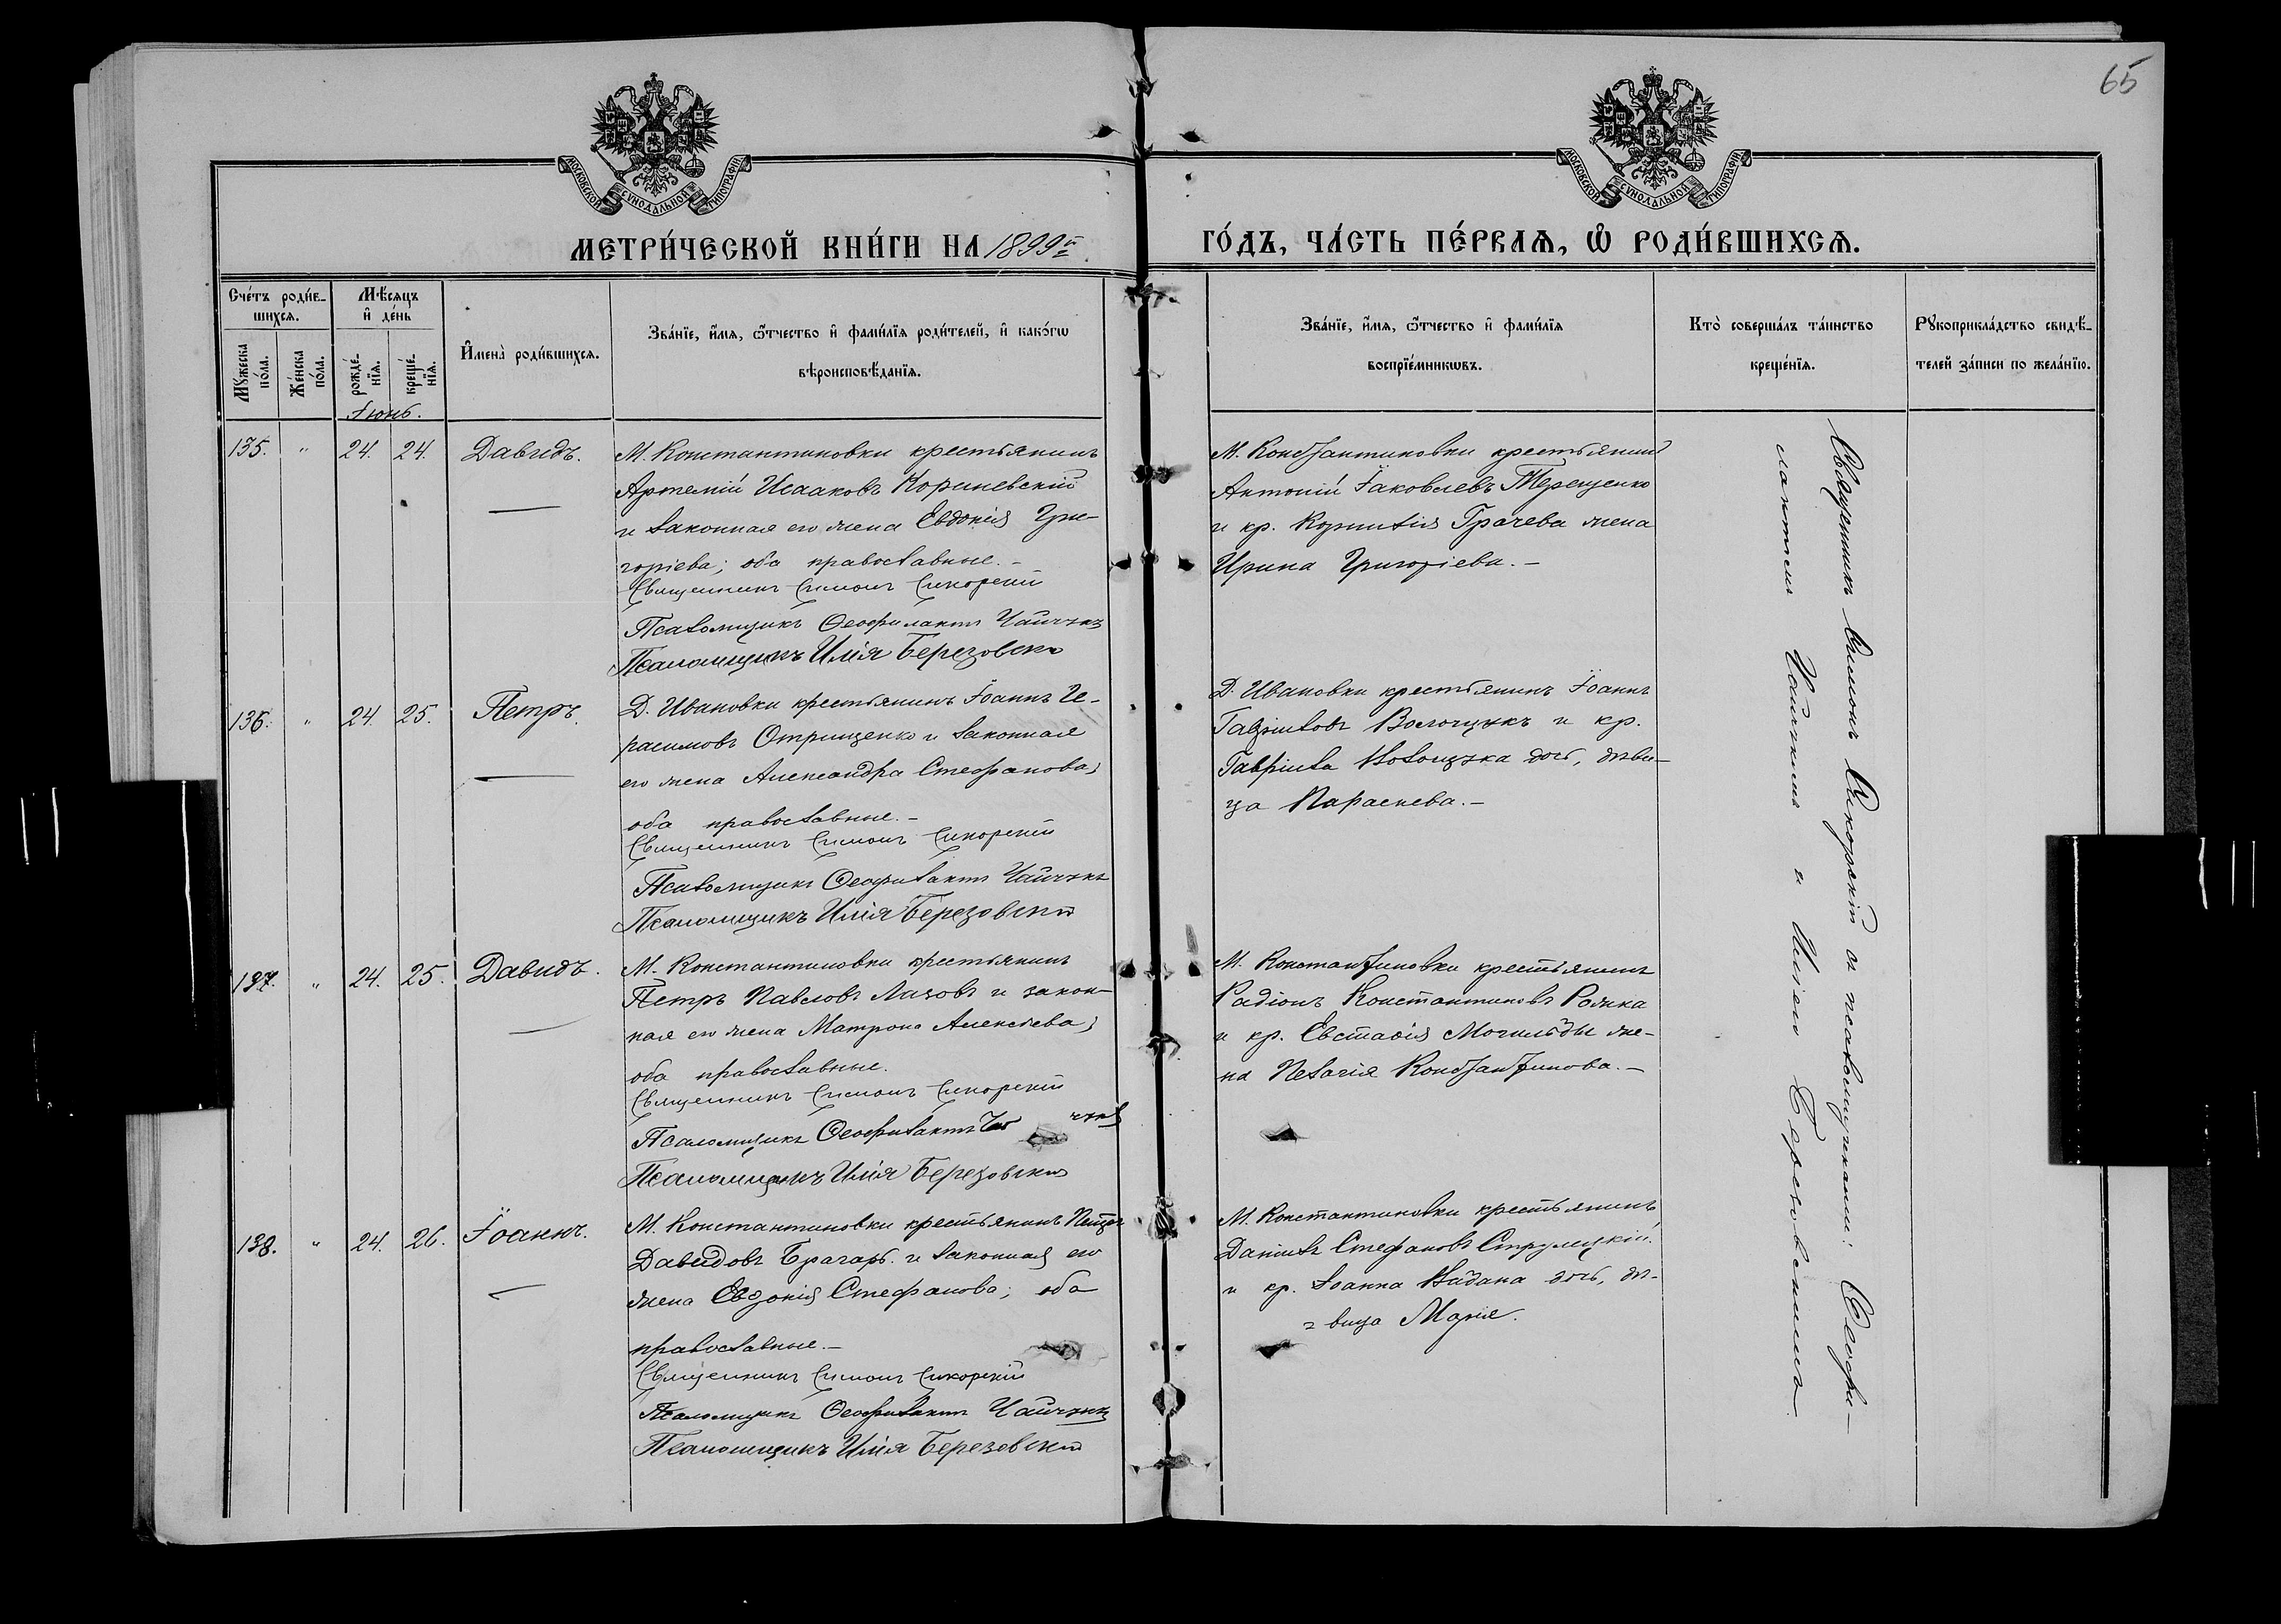 65
МОСКОВСКОЙ СѴНОДАЛЬНОЙ ТИПОГРАФІИ
МОСКОВСКОЙ СѴНОДАЛЬНОЙ ТИПОГРАФІИ
МЕТРИ́ЧЕСКОЙ КНИ́ГИ НА 1899й
ГО́ДЪ, ЧА́СТЬ ПЕ́РВАѦ, Ѽ РОДИ́ВШИХСѦ.
Сче́тъ роди́в-
шихсѧ.
Мѣ́сѧцъ
и҆ де́нь
Мꙋ́жеска по́ла.
Же́нска по́ла.
рожде́-нїѧ.
креще́-нїѧ.
И҆мена̀ роди́вшихсѧ.
Зва́нїе, и҆́мѧ, ѻ҆́тчество и҆ фами́лїѧ роди́телей, и҆ како́гѡ
вѣроисповѣ́данїѧ.
Зва́нїе, и҆́мѧ, ѻ҆́тчество и҆ фами́лїѧ
воспрїе́мникѡвъ.
Кто̀ соверша́лъ та́инство
креще́нїѧ.
Рꙋкоприкла́дство свидѣ́-
телей за́писи по жела́нїю.
Іюнь.
135. " 24. 24. Давидъ.
М. Константиновки крестьянинъ
Артемій Исааковъ Кориневскій
и законная его жена Евдокія Гри-
горіева; оба православные.-
Священникъ Симонъ Сикорскій
Псаломщикъ Ѳеофилактъ Чайчукъ
Псаломщикъ Илія Березовскій
М. Константиновки крестьянинъ
Антоній Іаковлевъ Терещенко
и кр. Грачева жена
Ирина Григоріева.-
136. " 24. 25. Петръ.
Д. Ивановки крестьянинъ Іоаннъ Ге-
расимовъ Отрищенко и законная
его жена Александра Стефанова;
оба православные.-
Священникъ Симонъ Сикорскій
Псаломщикъ Ѳеофилактъ Чайчукъ
Псаломщикъ Илія Березовскій
Д. Ивановки крестьянинъ Іоаннъ
Гавриловъ Волощукъ и кр.
Гавріила дочь, дѣви-
ца Параскева.-
137. " 24. 25. Давидъ.
М. Константиновки крестьянинъ
Петръ Павловъ Лазовъ и закон-
ная его жена Матрона Алексѣева;
оба православные.
Священникъ Симонъ Сикорскій
Псаломщикъ Ѳеофилактъ Чайчукъ
Псаломщикъ Илія Березовскій
М. Константиновки крестьянинъ
Радіонъ Константиновъ
и кр. Евстафія Могильды же-
на Пелагія Константинова.-
138. " 24. 26. Іоаннъ.
М. Константиновки крестьянинъ Петръ
Давидовъ Брагарь и законная его
жена Евдокія Стефанова; оба
православные.-
Священникъ Симонъ Сикорскій
Псаломщикъ Ѳеофилактъ Чайчукъ
Псаломщикъ Илія Березовскій
М. Константиновки крестьянинъ
Даніилъ Стефановъ Струлецкій
и кр. Іоанна Найдана дочь, дѣ-
вица Марія.
Священникъ Симонъ Сикорскій съ псаломщиками: Ѳеофи-
лактомъ Чайчукомъ и Иліею Березовскимъ